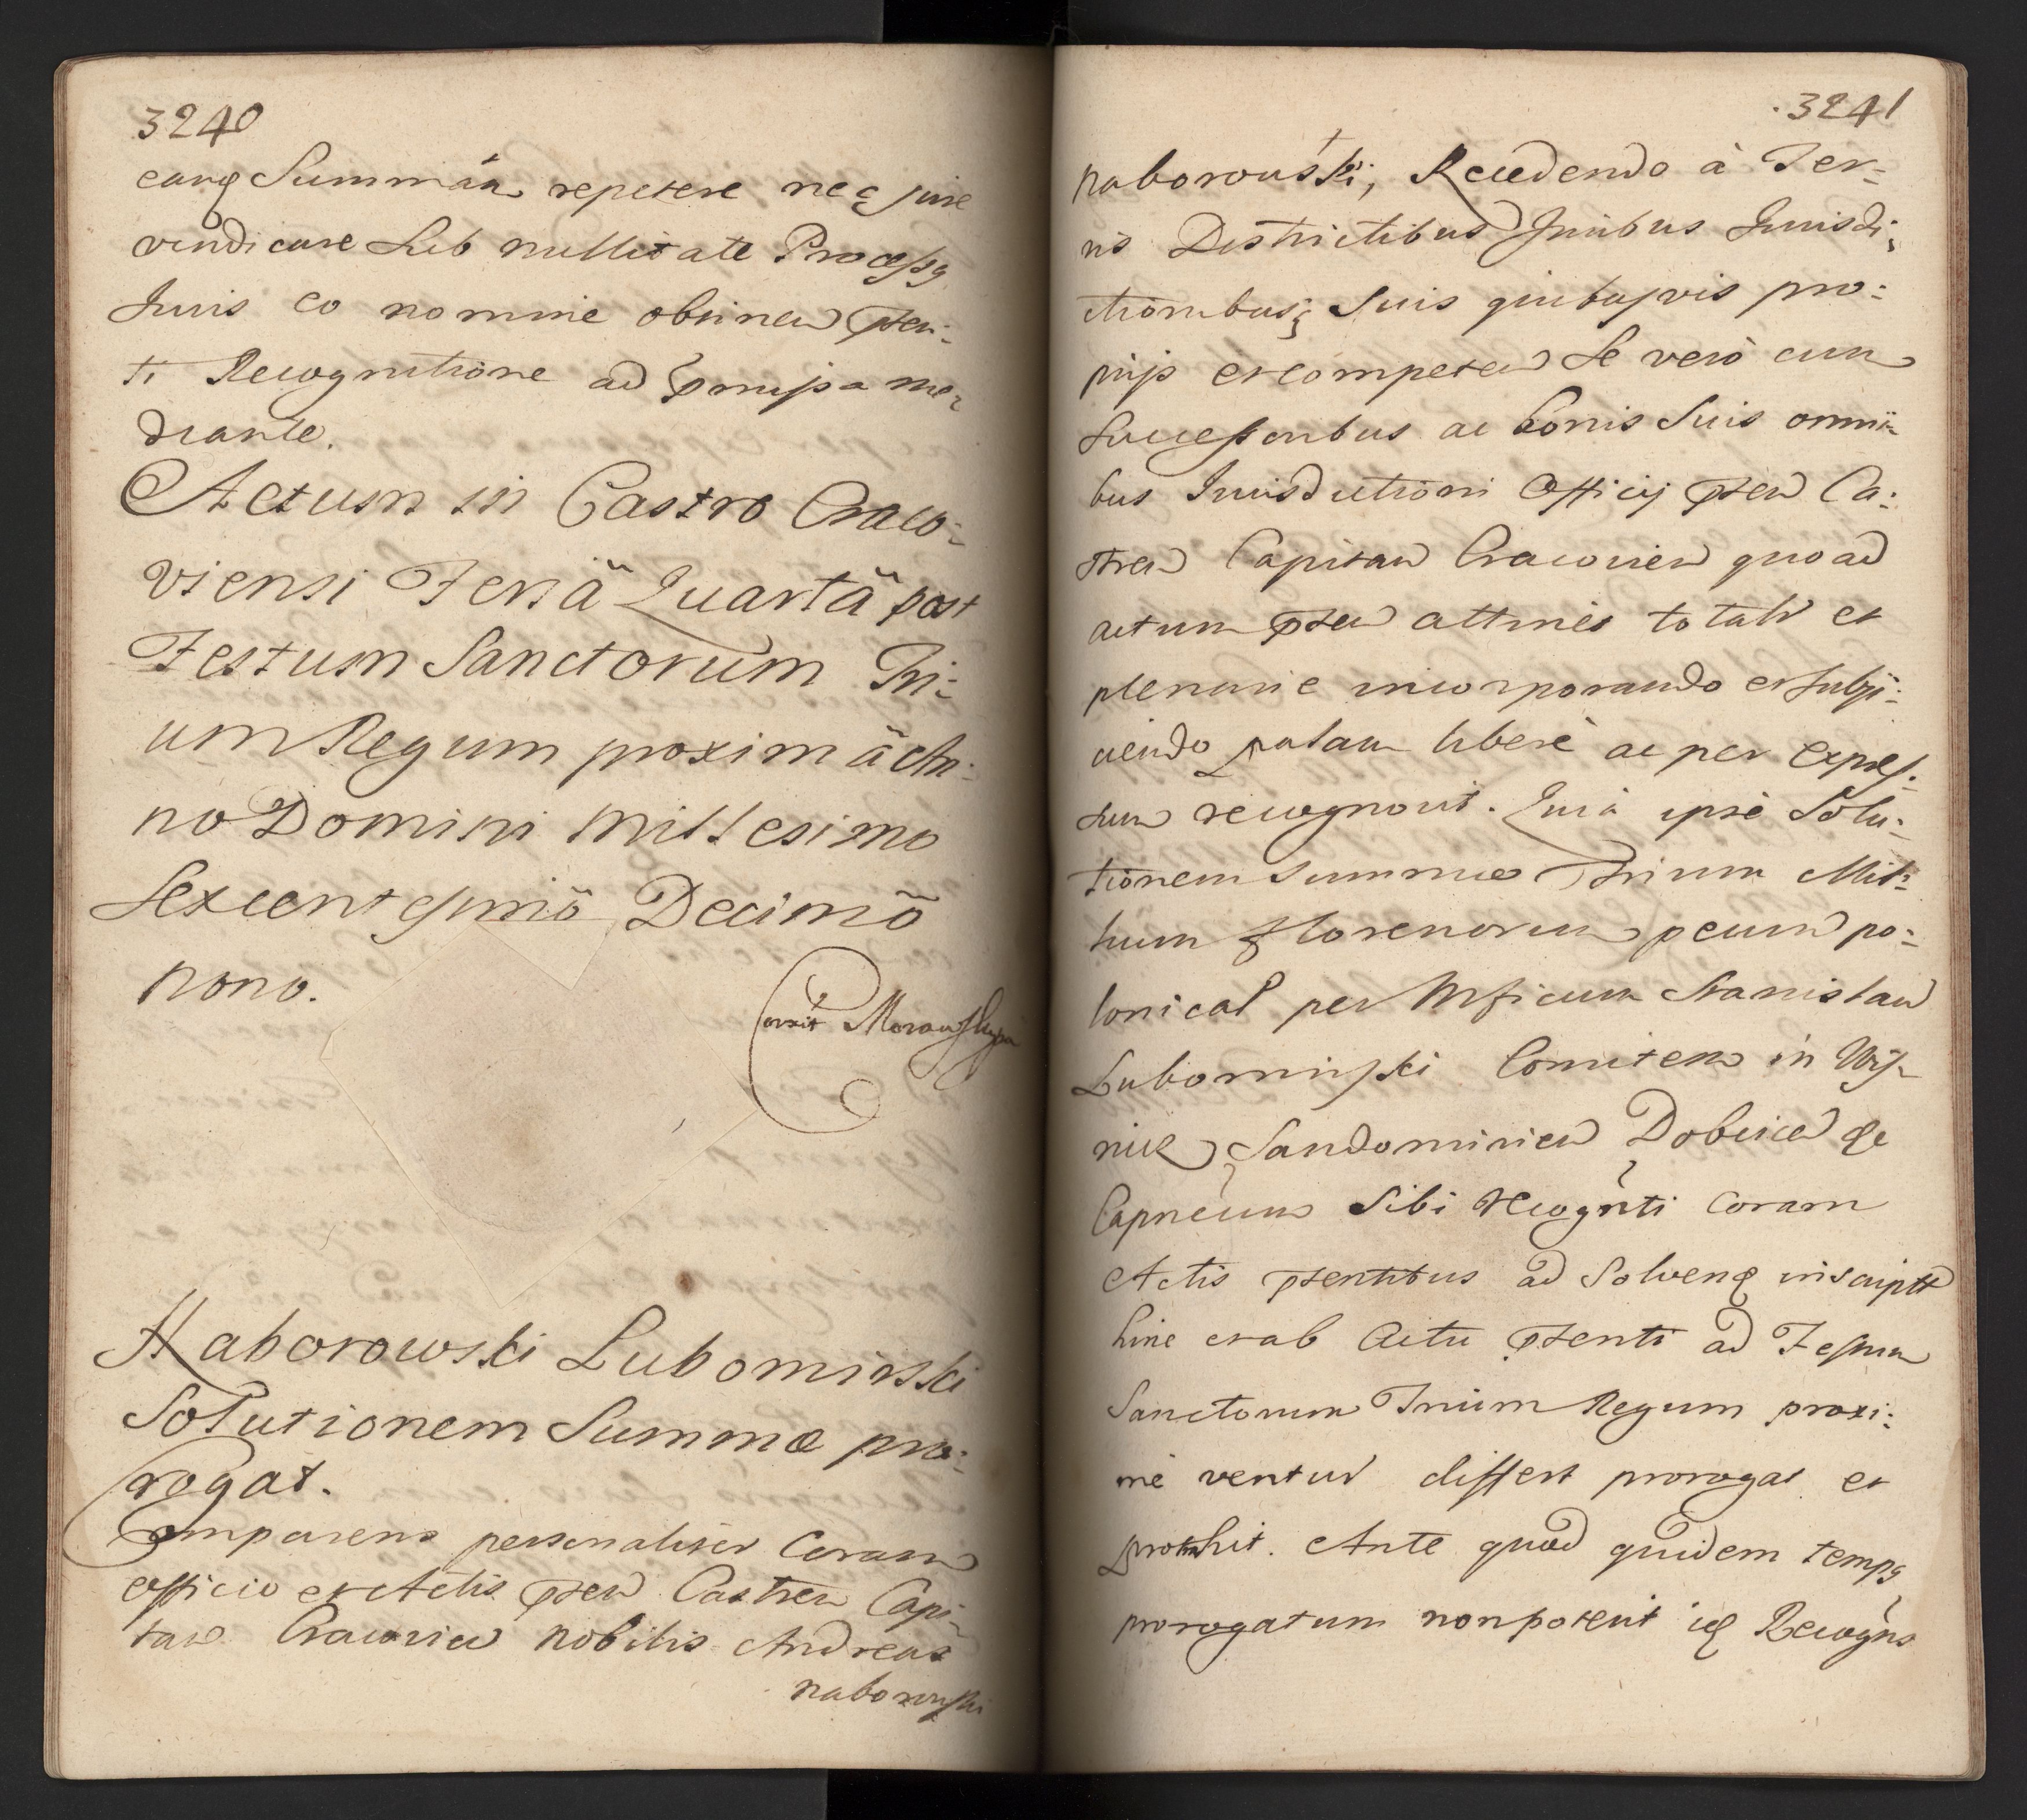 3240
eamq Summam repetere neq jure
vendicare Sub nullitate Processq
Juris eo nomine obtinen pten-
ti Recognitione ad pmissa me-
diante.
Actum in Castro Craco-
viensi Feriä Quartä post
Festum Sanctorum Tri-
um Regum proximä An-
no Domini Millesimo
Sexcentesimö Decimö
nono.
Correxit
Naborowski Lubomirski
Solutionem Summæ pro-
rogat.
Comparens personaliter Coram
officio et Actis pten Castren Capi-
tan Cracovien Nobilis Andreas
naborowski
3241
naborowski, Recedendo à Ter-
ris Districtibus Juribus Jurisdi-
ctionibusq Suis quibusvis pro-
prijs et competen Se verò cum
Successoribus ac bonis Suis omni-
bus Jurisdictioni Officij pten Ca-
stren Capitan Cracovien quo ad
actum pten attinet total et
plenarie incorporando et subji-
ciendo palam liberè ac per expres-
sum recognovit. Quià ipse Solu-
tionem Summæ Trium Mil-
lium florenorum pecun po-
lonical per Mficum Stanislaum
Lubomirski Comitem in Wis-
nicz Sandomirien Dobcicen qe
Capneum Sibi Recognti Coram
Actis ptentibus ad Solvenq inscriptt
hinc et ab Actu ptenti ad Festum
Sanctorum Trium Regum proxi-
mè ventur differt prorogat et
protrahit. Ante quod quidem tempq
prorogatum non poterit iq Recogns